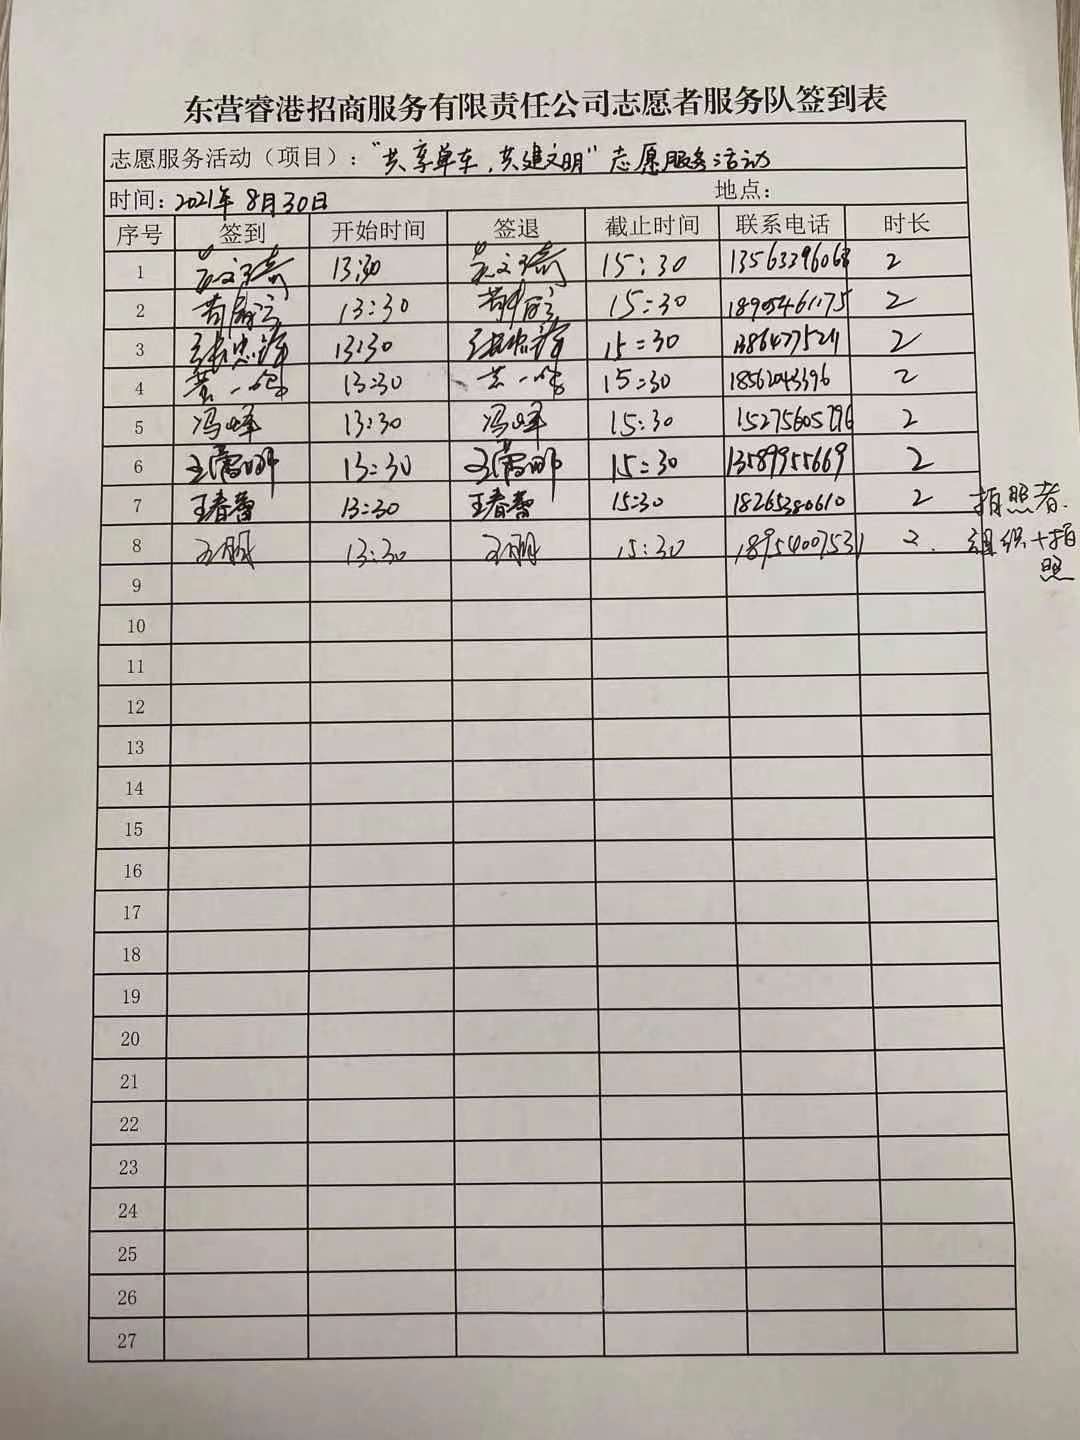 东营睿港招商服务有限责任公司志愿者服务队签到表
志愿服务活动（项目）："共享单车，共建文明"志愿服务活动
时间：2021年8月30日 地点：
序号 签到 开始时间 签退 截止时间 联系电话 时长
1 13:30 15:30 13563396068 2
2 13:30 15:30 18905461175 2
3 13:30 15:30 13864775211 2
4 13:30 15:30 18562043396 2
5 冯峰 13:30 冯峰 15:30 15275605796 2
6 13:30 15:30 13589955669 2
7 王春蕾 13:30 王春蕾 15:30 18265380610 2 拍照者.
8 13:30 15:30 18954007531 2. 组织+拍
照
9
10
11
12
13
14
15
16
17
18
19
20
21
22
23
24
25
26
27